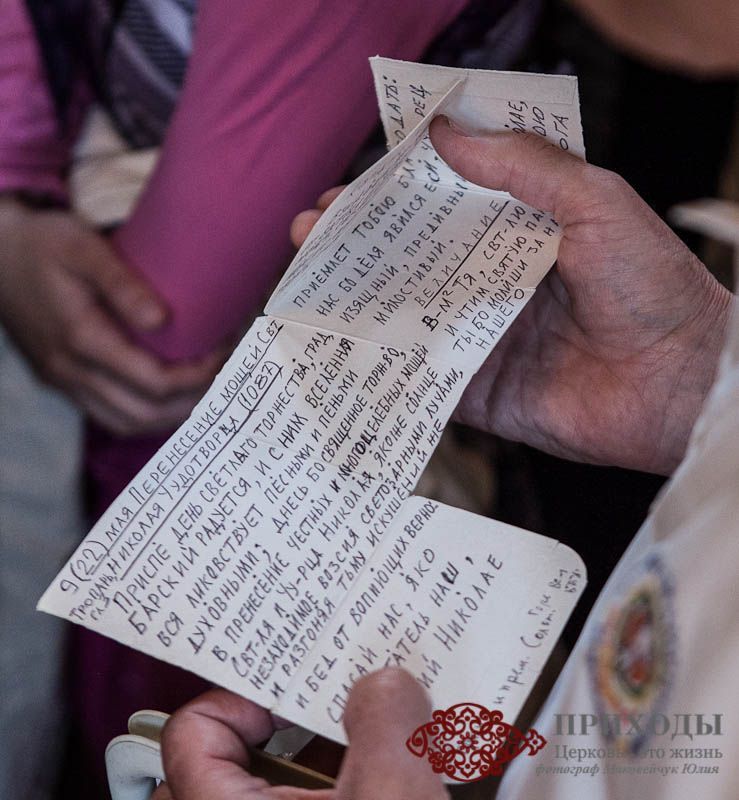 ОДАТЬ:
РЕЦ
ОЛАЕ,
ОЮ
ОГА
ПРИЕМЛЕТ ТОБОЮ БЛГ.
НАС БО ДЕЛЯ ЯВИЛСЯ ЕСИ
ИЗЯЩНЫЙ, ПРЕДИВНЫЙ
МИЛОСТИВЫЙ.
ВЕЛИЧАНИЕ
В-ЛS ТЯ, СВТ-ЛЮ
И ЧТИМ СВЯТУЮ ПА
ТЫ БО МОЛИШИ ЗА НА
НАШЕГО
9 (22) МАЯ ПЕРЕНЕСЕНИЕ МОЩЕЙ СВТ
НИКОЛАЯ ЧУДОТВОРЦА (1087)
ТРОПАРЬ,
ГЛ 3
ПРИСПЕ ДЕНЬ СВЕТЛАГО ТОРЖЕСТВА, ГРАД
БАРСКИЙ РАДУЕТСЯ, И С НИМ ВСЕЛЕННАЯ
ВСЯ ЛИКОВСТВУЕТ ПЕСНЬМИ И ПЕНЬМИ
ДУХОВНЫМИ: ДНЕСЬ БО СВЯЩЕННОЕ ТОРЖ-ВО,
В ПРЕНЕСЕНИЕ ЧЕСТНЫХ И МНОГОЦЕЛЕБНЫХ МОЩЕЙ
СВТ-ЛЯ И ЧУ-РЦА НИКОЛАЯ, ЯКОЖЕ СОЛНЦЕ
НЕЗАХОДИМОЕ ВОЗСИЯ СВЕТОЗАРНЫМИ ЛУЧАМИ,
И РАЗГОНЯЯ ТЬМУ ИСКУШЕНИЙ ЖЕ
И БЕД ОТ ВОПИЮЩИХ ВЕРНО:
СПАСАЙ НАС, ЯКО
АТЕЛЬ НАШ,
ИЙ НИКОЛАЕ
ПРИХОДЫ
Церковь - это жизнь
фотограф Маковейчук Юлия